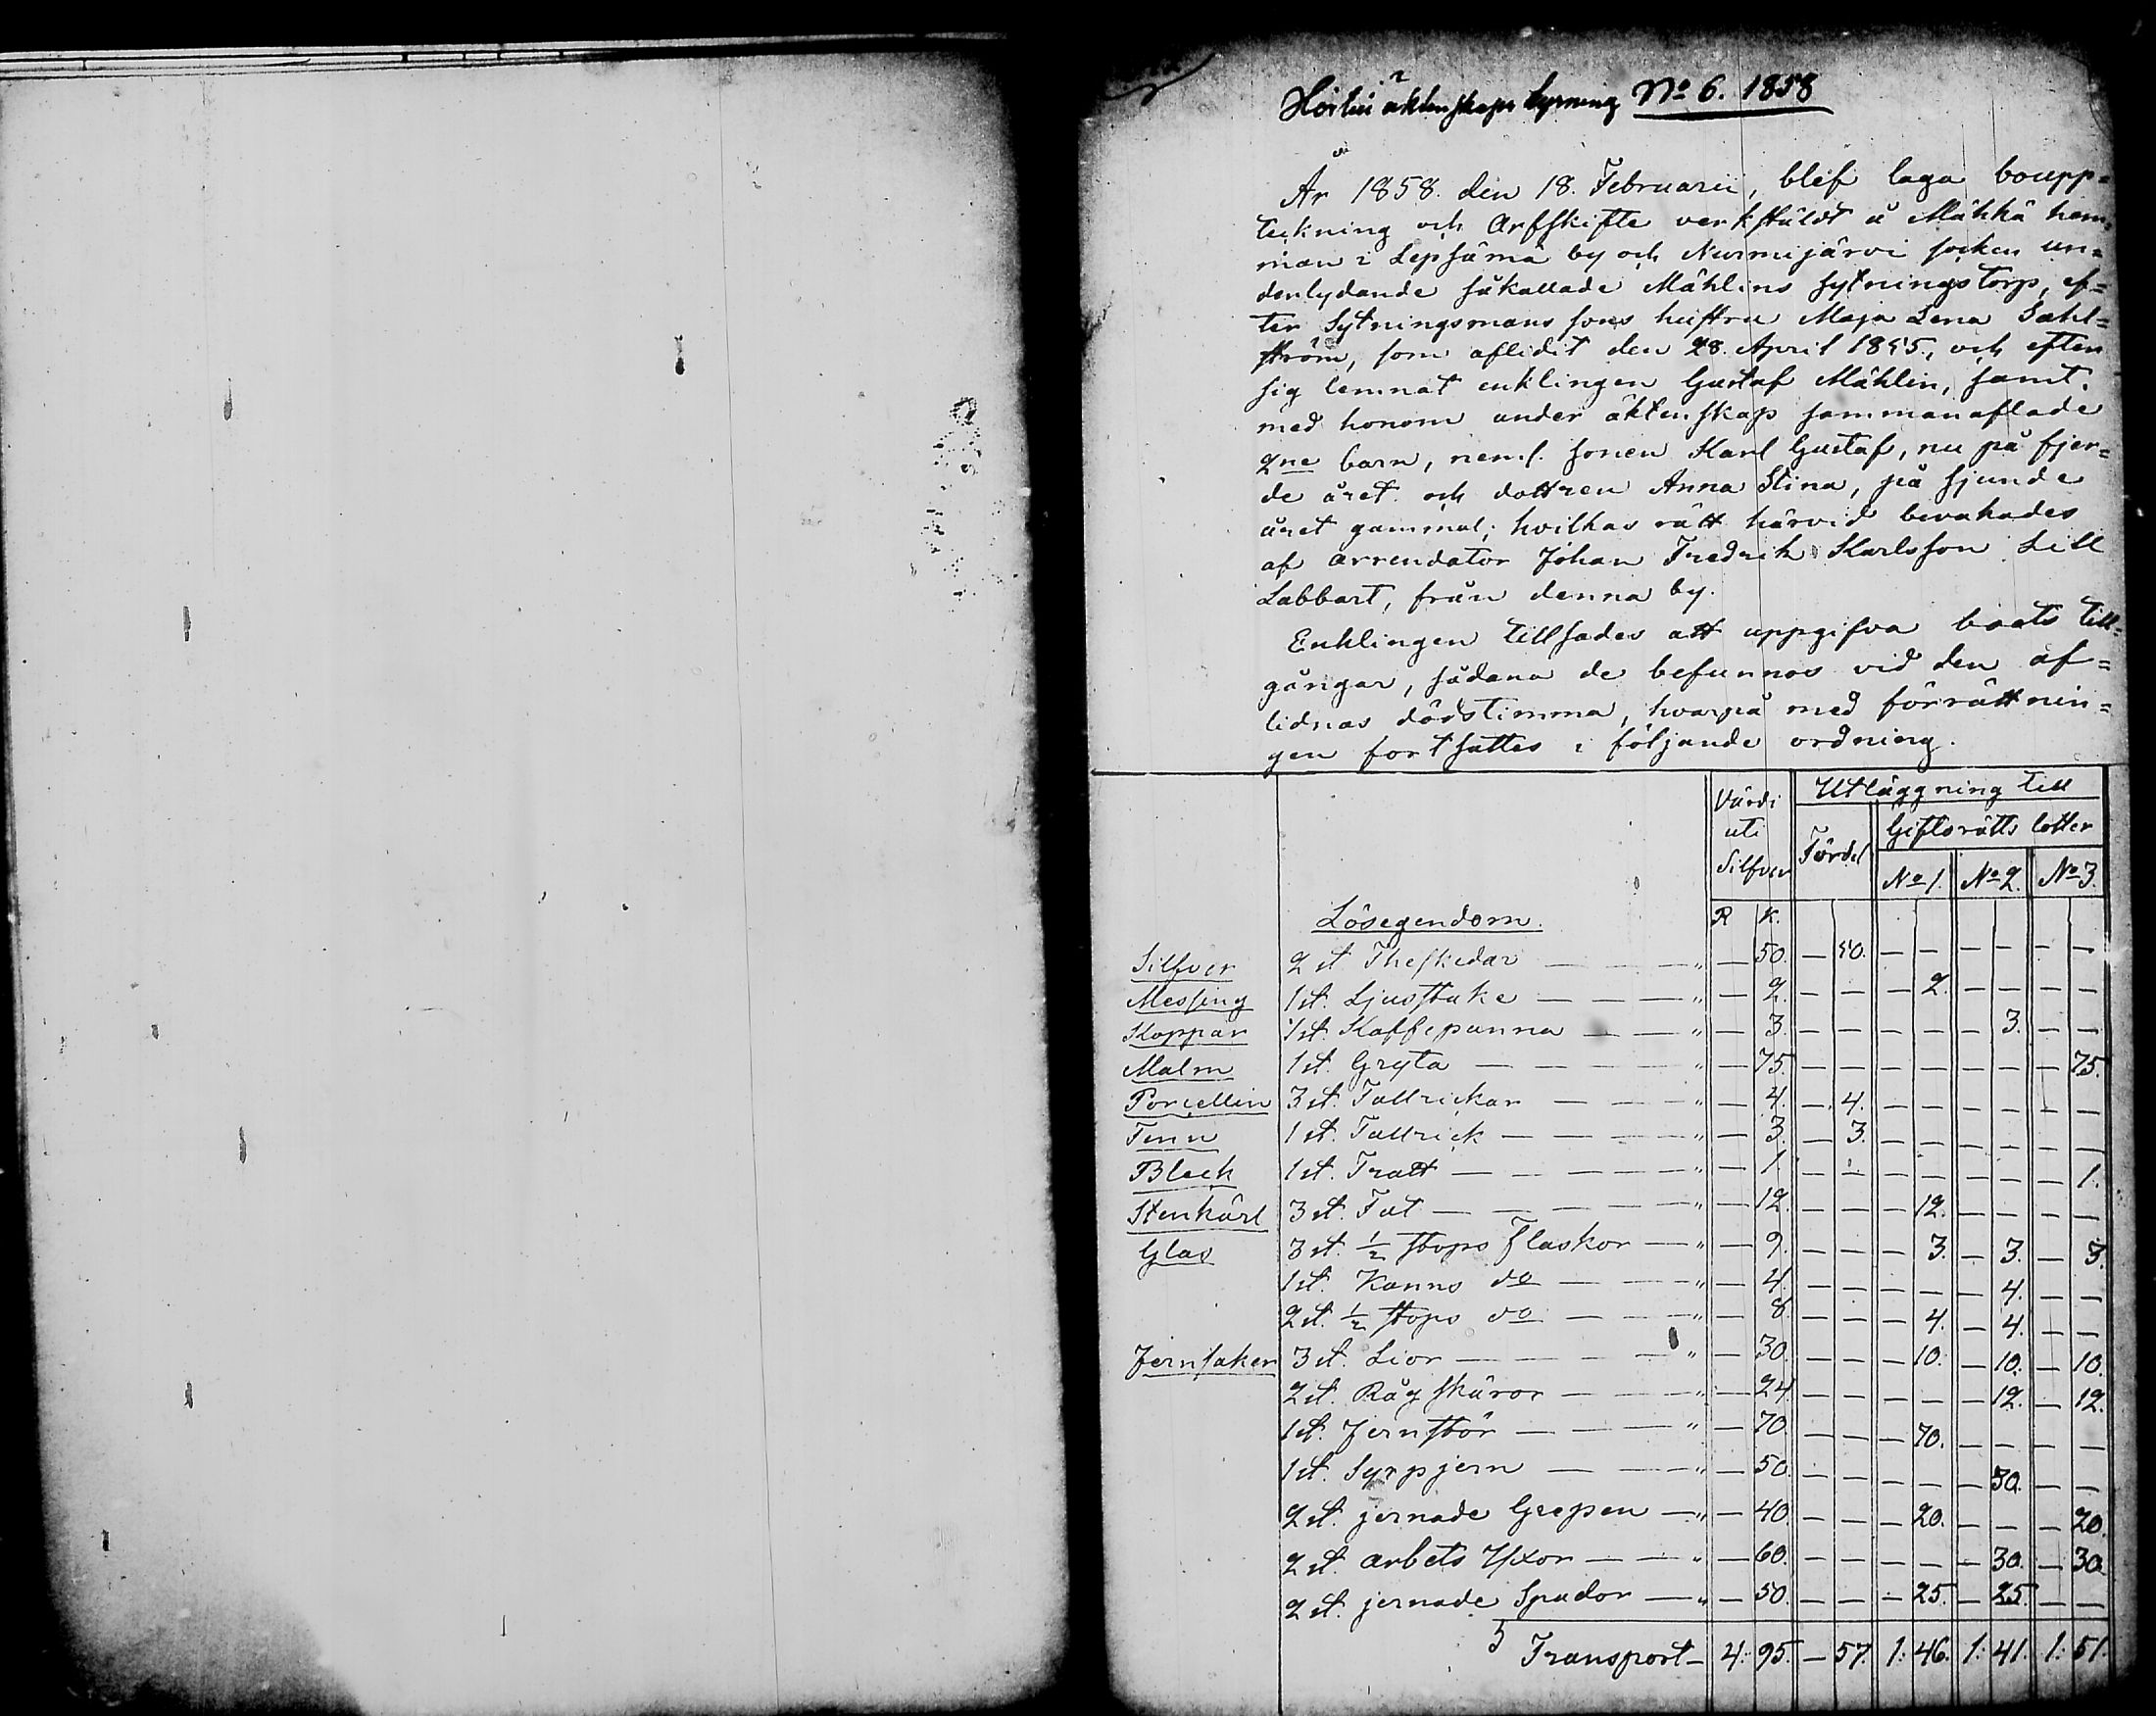 Hörtill äktenskaps lysning No 6. 1858
År 1858. den 18. Februarii, blef laga boupp=
teckning och Arfskifte verkstäldt å Mähkä hem=
man i Lepsämä by och Nurmijärvi socken un=
derlydande såkallade Mählins sytningstorp, ef=
ter Sytningsmans sons hustru Maja Lena Dahl=
ström, som aflidit den 28. April 1855., och efter
sig lemnat enklingen Gustaf Mählin, samt
med honom under äktenskap sammanaflade
2ne barn, neml. sonen Karl Gustaf, nu på fjer=
de året och dottren Anna Stina, på sjunde
året gammal; hvilkas rätt härvid bevakades
af arrendator Johan Fredrik Karlsson Lill
Labbart, från denna by.
Enklingen tillsades att uppgifva boets till=
gångar, sådana de befunnos vid den af=
lidnas dödstimma, hvarpå med förrättnin=
gen fortsattes i följande ordning.
Värdi uti Silfver Utläggning till
Fördel Giftorätts lotter
No 1. No 2. No 3.
Lösegendom. R K.
Silfver 2 st. Theskedar — — — „ — 50. — 50. — — — — — —
Messing 1 st. Ljusstake — — — „ — 2. — — — 2. — — — —
Koppar 1 st. Kaffepanna — — „ — 3. — — — — — 3. — —
Malm 1 st. Gryta — — — — „ — 75. — — — — — — — 75.
Porcellin 3 st. Tallrickar — — — „ — 4. — 4. — — — — — —
Tenn 1 st. Tallrick — — — — „ — 3. — 3. — — — — — —
Bleck 1 st. Tratt — — — — — „ — 1. — — — — — — — 1.
Stenkärl 3 st. Fat — — — — — „ — 12. — — — 12. — — — —
Glas 3 st. ½ stops Flaskor — „ — 9. — — — 3. — 3. — 3.
1 st. Kanns do — — — „ — 4. — — — — — 4. — —
2 st. ½ stops do — — — „ — 8. — — — 4. — 4. — —
Jernsaker 3 st. Lior — — — — „ — 30. — — — 10. — 10. — 10.
2 st. Rågskäror — — — „ — 24. — — — — — 12. — 12.
1 st. Jernstör — — — — „ — 70. — — — 70. — — — —
1 st. Syrpjern — — — „ — 50. — — — — — 50. — —
2 st. jernade Grepen — „ — 40. — — — 20. — — — 20.
2 st. arbets Yxor — — „ — 60. — — — — — 30. — 30.
2 st. jernade Spador — „ — 50. — — — 25. — 25. — —
Transport — 4: 95. — 57. 1: 46. 1: 41. 1: 51.